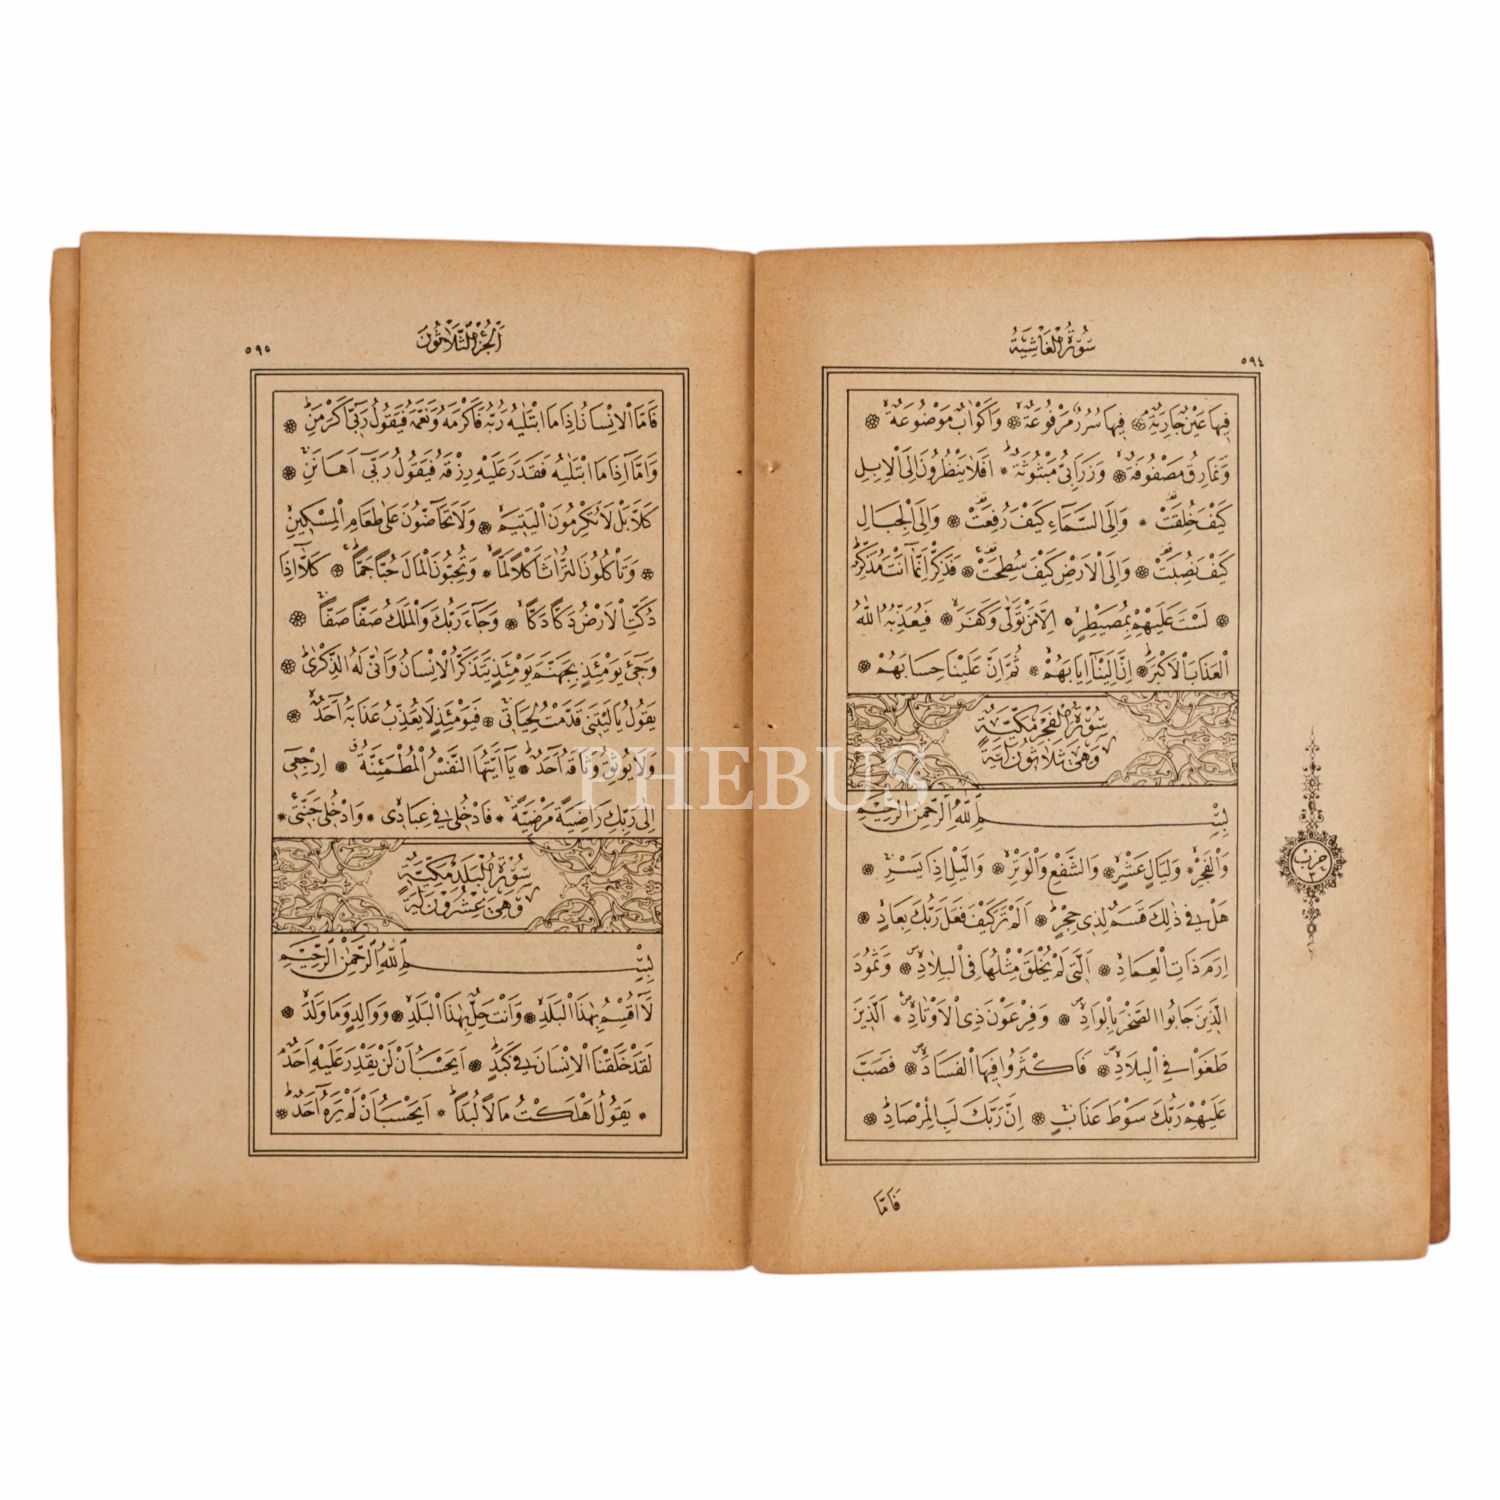 سُورَةُ الْغَاشِيَةِ
٥٩٤
فِيهَا عَيْنٌ جَارِيَةٌ ۞ فِيهَا سُرُرٌ مَرْفُوعَةٌ ۞ وَاَكْوَابٌ مَوْضُوعَةٌ ۞
وَنَمَارِقُ مَصْفُوفَةٌ ۞ وَزَرَابِىُّ مَبْثُوثَةٌ * اَفَلَا يَنْظُرُونَ اِلَى الْاِبِلِ
كَيْفَ خُلِقَتْ * وَاِلَى السَّمَاءِ كَيْفَ رُفِعَتْ ۞ وَاِلَى الْجِبَالِ
كَيْفَ نُصِبَتْ ۞ وَاِلَى الْاَرْضِ كَيْفَ سُطِحَتْ ۞ فَذَكِّرْ اِنَّمَا اَنْتَ مُذَكِّرٌ
۞ لَسْتَ عَلَيْهِمْ بِمُصَيْطِرٍ * اِلَّا مَنْ تَوَلّٰى وَكَفَرَ ۞ فَيُعَذِّبُهُ اللّٰهُ
الْعَذَابَ الْاَكْبَرَ ۞ اِنَّ اِلَيْنَا اِيَابَهُمْ * ثُمَّ اِنَّ عَلَيْنَا حِسَابَهُمْ ۞
سُورَةُ الْفَجْرِ مَكِّيَّةٌ
وَهِىَ ثَلَاثُونَ اٰيَةً
بِسْمِ اللّٰهِ الرَّحْمٰنِ الرَّحِيمِ
وَالْفَجْرِ * وَلَيَالٍ عَشْرٍ ۞ وَالشَّفْعِ وَالْوَتْرِ ۞ وَالَّيْلِ اِذَا يَسْرِ ۞
هَلْ فِى ذٰلِكَ قَسَمٌ لِذِى حِجْرٍ ۞ اَلَمْ تَرَ كَيْفَ فَعَلَ رَبُّكَ بِعَادٍ ۞
اِرَمَ ذَاتِ الْعِمَادِ ۞ اَلَّتِى لَمْ يُخْلَقْ مِثْلُهَا فِى الْبِلَادِ ۞ وَثَمُودَ
الَّذِينَ جَابُوا الصَّخْرَ بِالْوَادِ ۞ وَفِرْعَوْنَ ذِى الْاَوْتَادِ * اَلَّذِينَ
طَغَوْا فِى الْبِلَادِ ۞ فَاَكْثَرُوا فِيهَا الْفَسَادَ ۞ فَصَبَّ
عَلَيْهِمْ رَبُّكَ سَوْطَ عَذَابٍ ۞ اِنَّ رَبَّكَ لَبِالْمِرْصَادِ ۞
حزب
٢
فَاَمَّا
اَلْجُزْءُ الثَّلَاثُونَ
٥٩٥
فَاَمَّا الْاِنْسَانُ اِذَا مَا ابْتَلٰيهُ رَبُّهُ فَاَكْرَمَهُ وَنَعَّمَهُ فَيَقُولُ رَبِّى اَكْرَمَنِ ۞
وَاَمَّا اِذَا مَا ابْتَلٰيهُ فَقَدَرَ عَلَيْهِ رِزْقَهُ فَيَقُولُ رَبِّى اَهَانَنِ ۞
كَلَّا بَلْ لَا تُكْرِمُونَ الْيَتِيمَ ۞ وَلَا تَحَاضُّونَ عَلٰى طَعَامِ الْمِسْكِينِ
۞ وَتَأْكُلُونَ التُّرَاثَ اَكْلًا لَمًّا * وَتُحِبُّونَ الْمَالَ حُبًّا جَمًّا ۞ كَلَّا اِذَا
دُكَّتِ الْاَرْضُ دَكًّا دَكًّا ۞ وَجَاءَ رَبُّكَ وَالْمَلَكُ صَفًّا صَفًّا ۞
وَجِىءَ يَوْمَئِذٍ بِجَهَنَّمَ يَوْمَئِذٍ يَتَذَكَّرُ الْاِنْسَانُ وَاَنّٰى لَهُ الذِّكْرٰى ۞
يَقُولُ يَالَيْتَنِى قَدَّمْتُ لِحَيَاتِى ۞ فَيَوْمَئِذٍ لَا يُعَذِّبُ عَذَابَهُ اَحَدٌ ۞
وَلَا يُوثِقُ وَثَاقَهُ اَحَدٌ * يَا اَيَّتُهَا النَّفْسُ الْمُطْمَئِنَّةُ * اِرْجِعِى
اِلٰى رَبِّكِ رَاضِيَةً مَرْضِيَّةً * فَادْخُلِى فِى عِبَادِى * وَادْخُلِى جَنَّتِى *
سُورَةُ الْبَلَدِ مَكِّيَّةٌ
وَهِىَ عِشْرُونَ اٰيَةً
بِسْمِ اللّٰهِ الرَّحْمٰنِ الرَّحِيمِ
لَا اُقْسِمُ بِهٰذَا الْبَلَدِ ۞ وَاَنْتَ حِلٌّ بِهٰذَا الْبَلَدِ ۞ وَوَالِدٍ وَمَا وَلَدَ ۞
لَقَدْ خَلَقْنَا الْاِنْسَانَ فِى كَبَدٍ ۞ اَيَحْسَبُ اَنْ لَنْ يَقْدِرَ عَلَيْهِ اَحَدٌ
* يَقُولُ اَهْلَكْتُ مَالًا لُبَدًا * اَيَحْسَبُ اَنْ لَمْ يَرَهُ اَحَدٌ ۞
PHEBUS